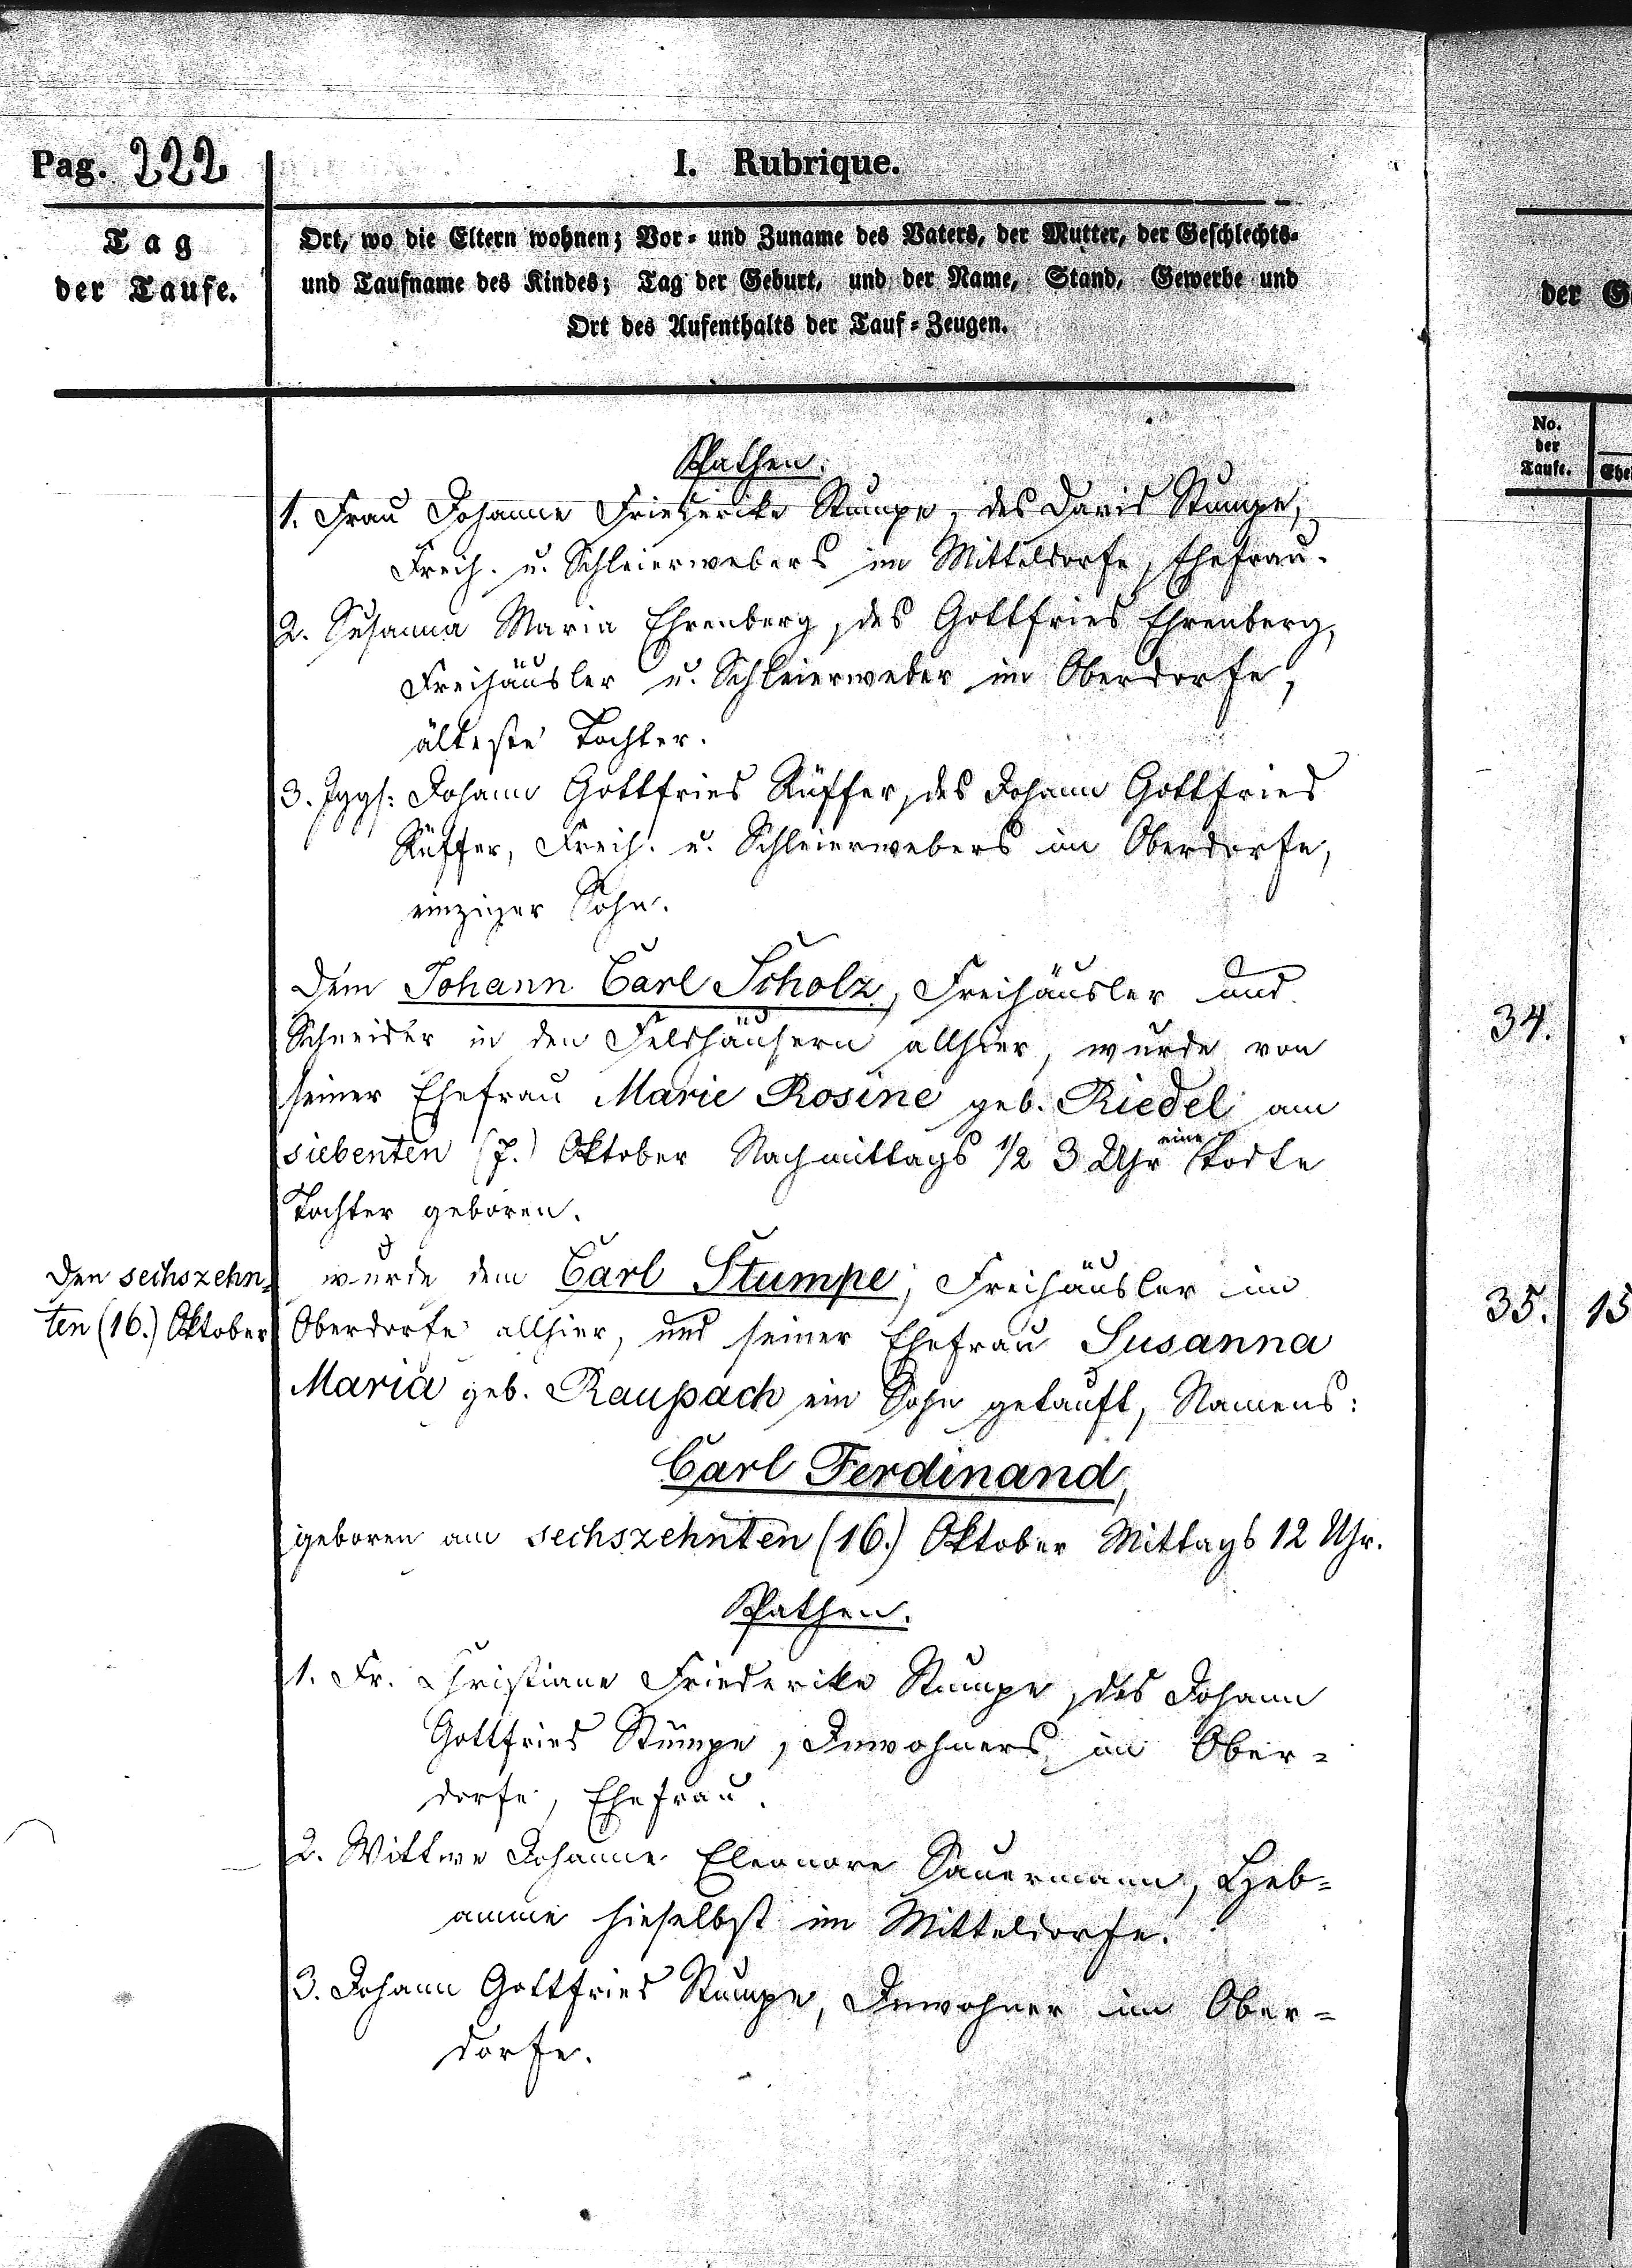 Pag. 222
I. Rubrique.
Tag
der Taufe.
Ort, wo die Eltern wohnen; Vor- und Zuname des Vaters, der Mutter, der Geschlechts-
und Taufname des Kindes; Tag der Geburt, und der Name, Stand, Gewerbe und
Ort des Aufenthalts der Tauf-Zeugen.
Pathen.
1. Frau Johanne Friederike Stumpe, des David Stumpe,
Freih. u. Schleierwebers im Mitteldorfe, Ehefrau.
2. Susanna Maria Ehrenberg, des Gottfried Ehrenberg,
Freihäusler u. Schleierweber im Oberdorfe,
älteste Tochter.
3. Jggs: Johann Gottfried Rüffer, des Johann Gottfried
Rüffer, Freih. u. Schleierwebers im Oberdorfe,
einziger Sohn.
Dem Johann Carl Scholz, Freihäusler und
Schneider in den Feldhäusern allhier, wurde von
seiner Ehefrau Marie Rosine geb. Riedel am
siebenten (7.) Oktober Nachmittags 1/2 3 Uhr eine todte
Tochter geboren.
Den sechszehn-
ten (16.) Oktober
wurde dem Carl Stumpe, Freihäusler im
Oberdorfe allhier, und seiner Ehefrau Susanna
Maria geb. Raupach ein Sohn getauft, Namens:
Carl Ferdinand,
geboren am sechszehnten (16.) Oktober Mittags 12 Uhr.
Pathen.
1. Fr. Christiane Friederike Stumpe, des Johann
Gottfried Stumpe, Inwohners im Ober-
dorfe, Ehefrau.
2. Wittwe Johanne Eleonore Sauermann, Heb-
amme hieselbst im Mitteldorfe.
3. Johann Gottfried Stumpe, Inwohner im Ober-
dorfe.
der
No.
der
Taufe.
34.
35. 15